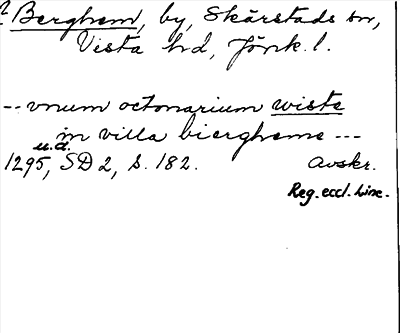 ? Berghem, by, Skärstads sn,
Vista hd, Jönk. l.
-- vnum octonarium wiste
in villa biergheme ---
u.d.
1295, SD 2, s. 182. Avskr.
Reg. eccl. Linc.